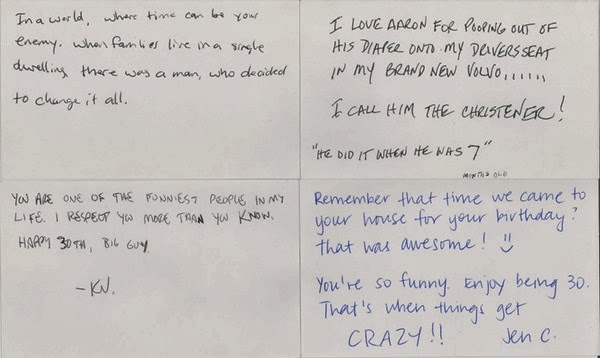 In a world, where time can be your
enemy. When families live in a single
dwelling, there was a man, who decided
to change it all.
I LOVE AARON FOR POOPING OUT OF
HIS DIAPER ONTO MY DRIVERSSEAT
IN MY BRAND NEW VOLVO.......
I CALL HIM THE CHRISTENER!
"HE DID IT WHEN HE WAS 7"
MONTHS OLD
YOU ARE ONE OF THE FUNNIEST PEOPLE IN MY
LIFE. I RESPECT YOU MORE THAN YOU KNOW.
HAPPY 30TH, BIG GUY.
-KN.
Remember that time we came to
your house for your birthday?
That was awesome! :)
You're so funny. Enjoy being 30.
That's when things get
CRAZY!!
Jen C.